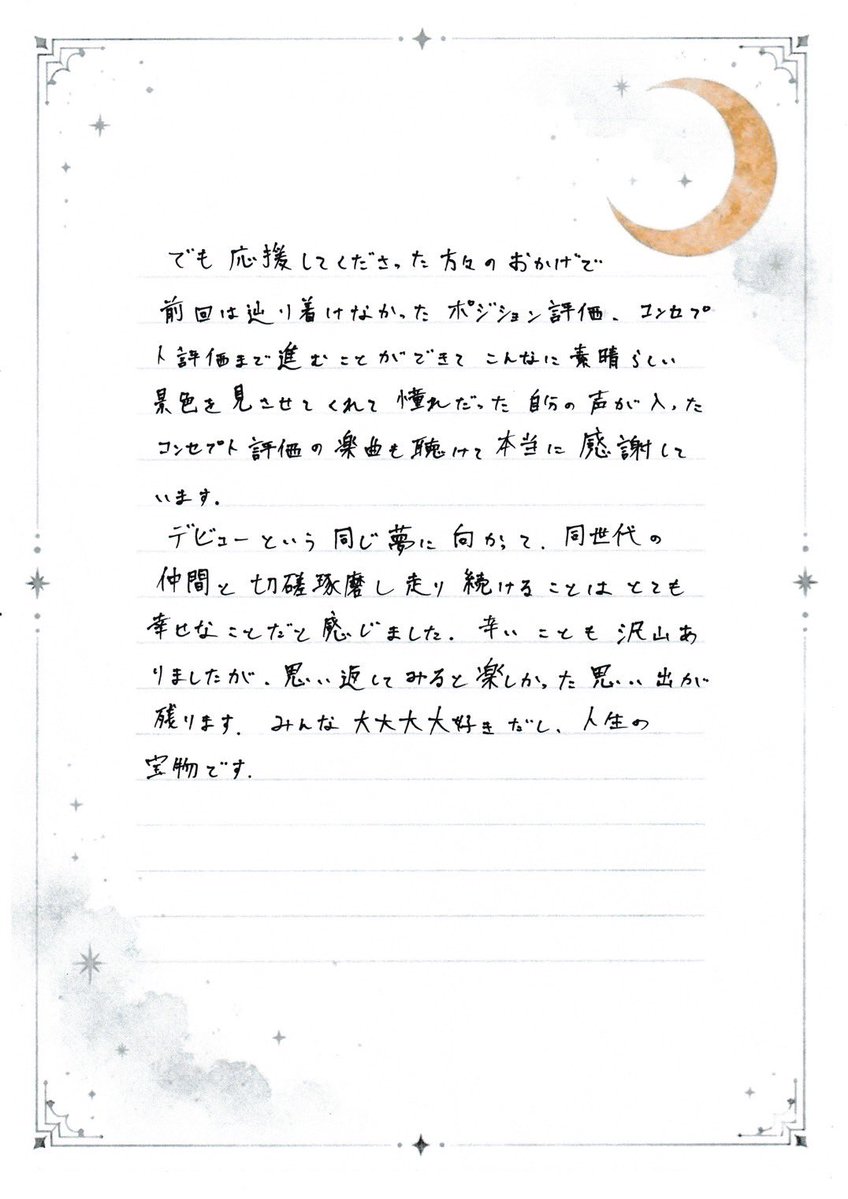 でも応援してくださった方々のおかげで
前回は辿り着けなかったポジション評価、コンセプ
ト評価まで進むことができてこんなに素晴らしい
景色を見させてくれて憧れだった自分の声が入った
コンセプト評価の楽曲も聴けて本当に感謝して
います。
デビューという同じ夢に向かって、同世代の
仲間と切磋琢磨し走り続けることはとても
幸せなことだと感じました。辛いことも沢山あ
りましたが、思い返してみると楽しかった思い出が
残ります。みんな大大大大好きだし、人生の
宝物です。